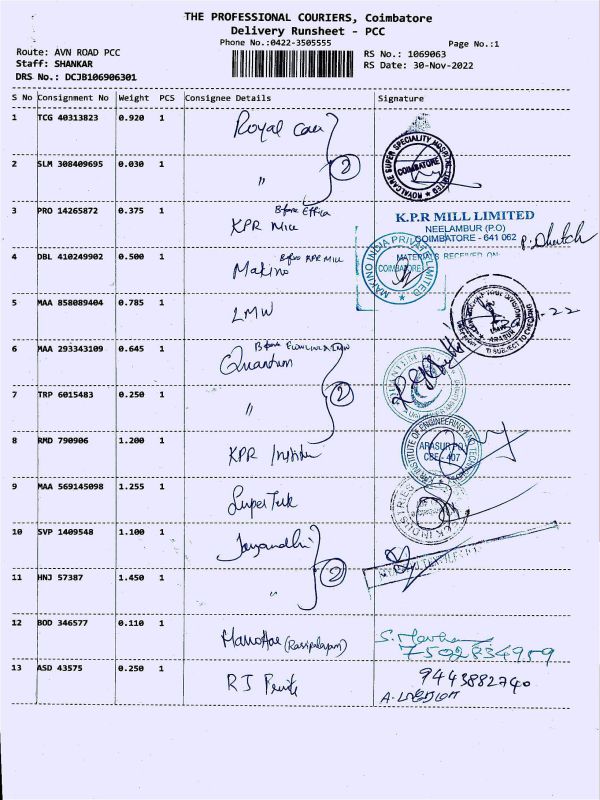 THE PROFESSIONAL COURIERS, Coimbatore
Delivery Runsheet - PCC
Phone No.:0422-3505555
Page No.:1
Route: AVN ROAD PCC
Staff: SHANKAR
DRS No.: DCJB106906301
RS No.: 1069063
RS Date: 30-Nov-2022
S No Consignment No Weight PCS Consignee Details Signature
1 TCG 40313823 0.920 1 Royal Care
ROYALCARE SUPER SPECIALITY HOSPITAL LIMITED
COIMBATORE
2 SLM 308409695 0.030 1 "
2
3 PRO 14265872 0.375 1 KPR Mill
K.P.R MILL LIMITED
NEELAMBUR (P.O)
COIMBATORE - 641 062
MATERIALS RECEIVED ON
4 DBL 410249902 0.500 1 Before KPR Mill
Makino
MAKINO INDIA PRIVATE LIMITED
COIMBATORE
5 MAA 858089404 0.785 1 LMW
ARASUR
SUBJECT TO CHECKING
6 MAA 293343109 0.645 1 Quantum
7 TRP 6015483 0.250 1 "
2
8 RMD 790906 1.200 1 KPR Institute
KPR INSTITUTE OF ENGINEERING AND
ARASUR PO
CBE - 407
9 MAA 569145098 1.255 1
10 SVP 1409548 1.100 1
11 HNJ 57387 1.450 1 "
2
12 BOD 346577 0.110 1
7502834959
13 ASD 43575 0.250 1 RJ
9443882740